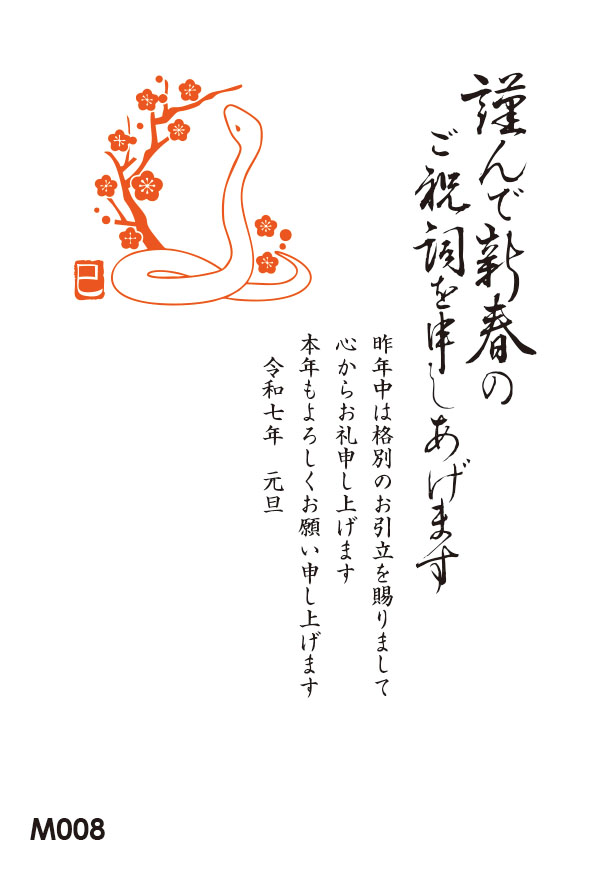 謹んで新春の
ご祝詞を申しあげます
昨年中は格別のお引立を賜りまして
心からお礼申し上げます
本年もよろしくお願い申し上げます
令和七年　元旦
巳
M008